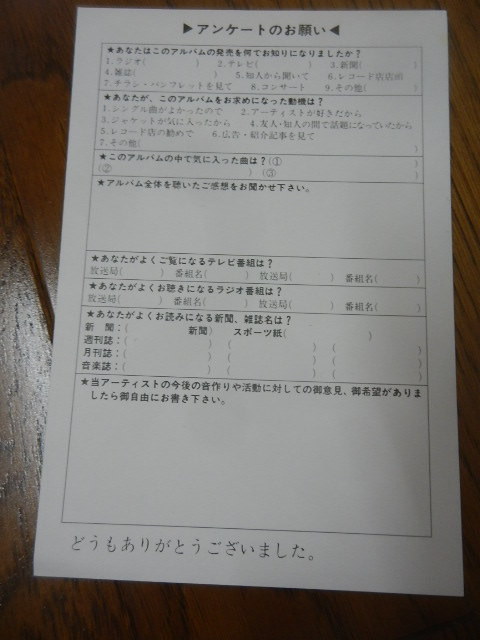 ▶アンケートのお願い◀
★あなたはこのアルバムの発売を何でお知りになりましたか？
1.ラジオ( ) 2.テレビ( ) 3.新聞( )
4.雑誌( ) 5.知人から聞いて 6.レコード店店頭
7.チラシ・パンフレットを見て 8.コンサート 9.その他( )
★あなたが、このアルバムをお求めになった動機は？
1.シングル曲がよかったので 2.アーティストが好きだから
3.ジャケットが気に入ったから 4.友人・知人の間で話題になっていたから
5.レコード店の勧めで 6.広告・紹介記事を見て
7.その他( )
★このアルバムの中で気に入った曲は？(① )
(② ) (③ )
★アルバム全体を聴いたご感想をお聞かせ下さい。
★あなたがよくご覧になるテレビ番組は？
放送局( ) 番組名( ) 放送局( ) 番組名( )
★あなたがよくお聴きになるラジオ番組は？
放送局( ) 番組名( ) 放送局( ) 番組名( )
★あなたがよくお読みになる新聞、雑誌名は？
新 聞：( 新聞) スポーツ紙( )
週刊誌：( ) ( ) ( )
月刊誌：( ) ( ) ( )
音楽誌：( ) ( ) ( )
★当アーティストの今後の音作りや活動に対しての御意見、御希望がありま
したら御自由にお書き下さい。
どうもありがとうございました。